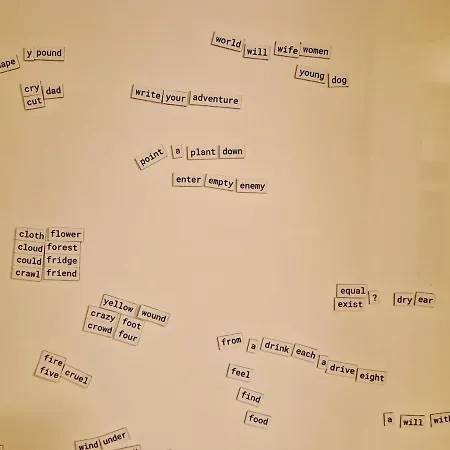 world will wife women
y pound
ape
young dog
cry dad
cut
write your adventure
point a plant down
enter empty enemy
cloth flower
cloud forest
could fridge
crawl friend
equal
exist ?
dry ear
yellow wound
crazy foot
crowd four
from a drink each a drive eight
fire
five cruel
feel
find
food
a will with
wind under